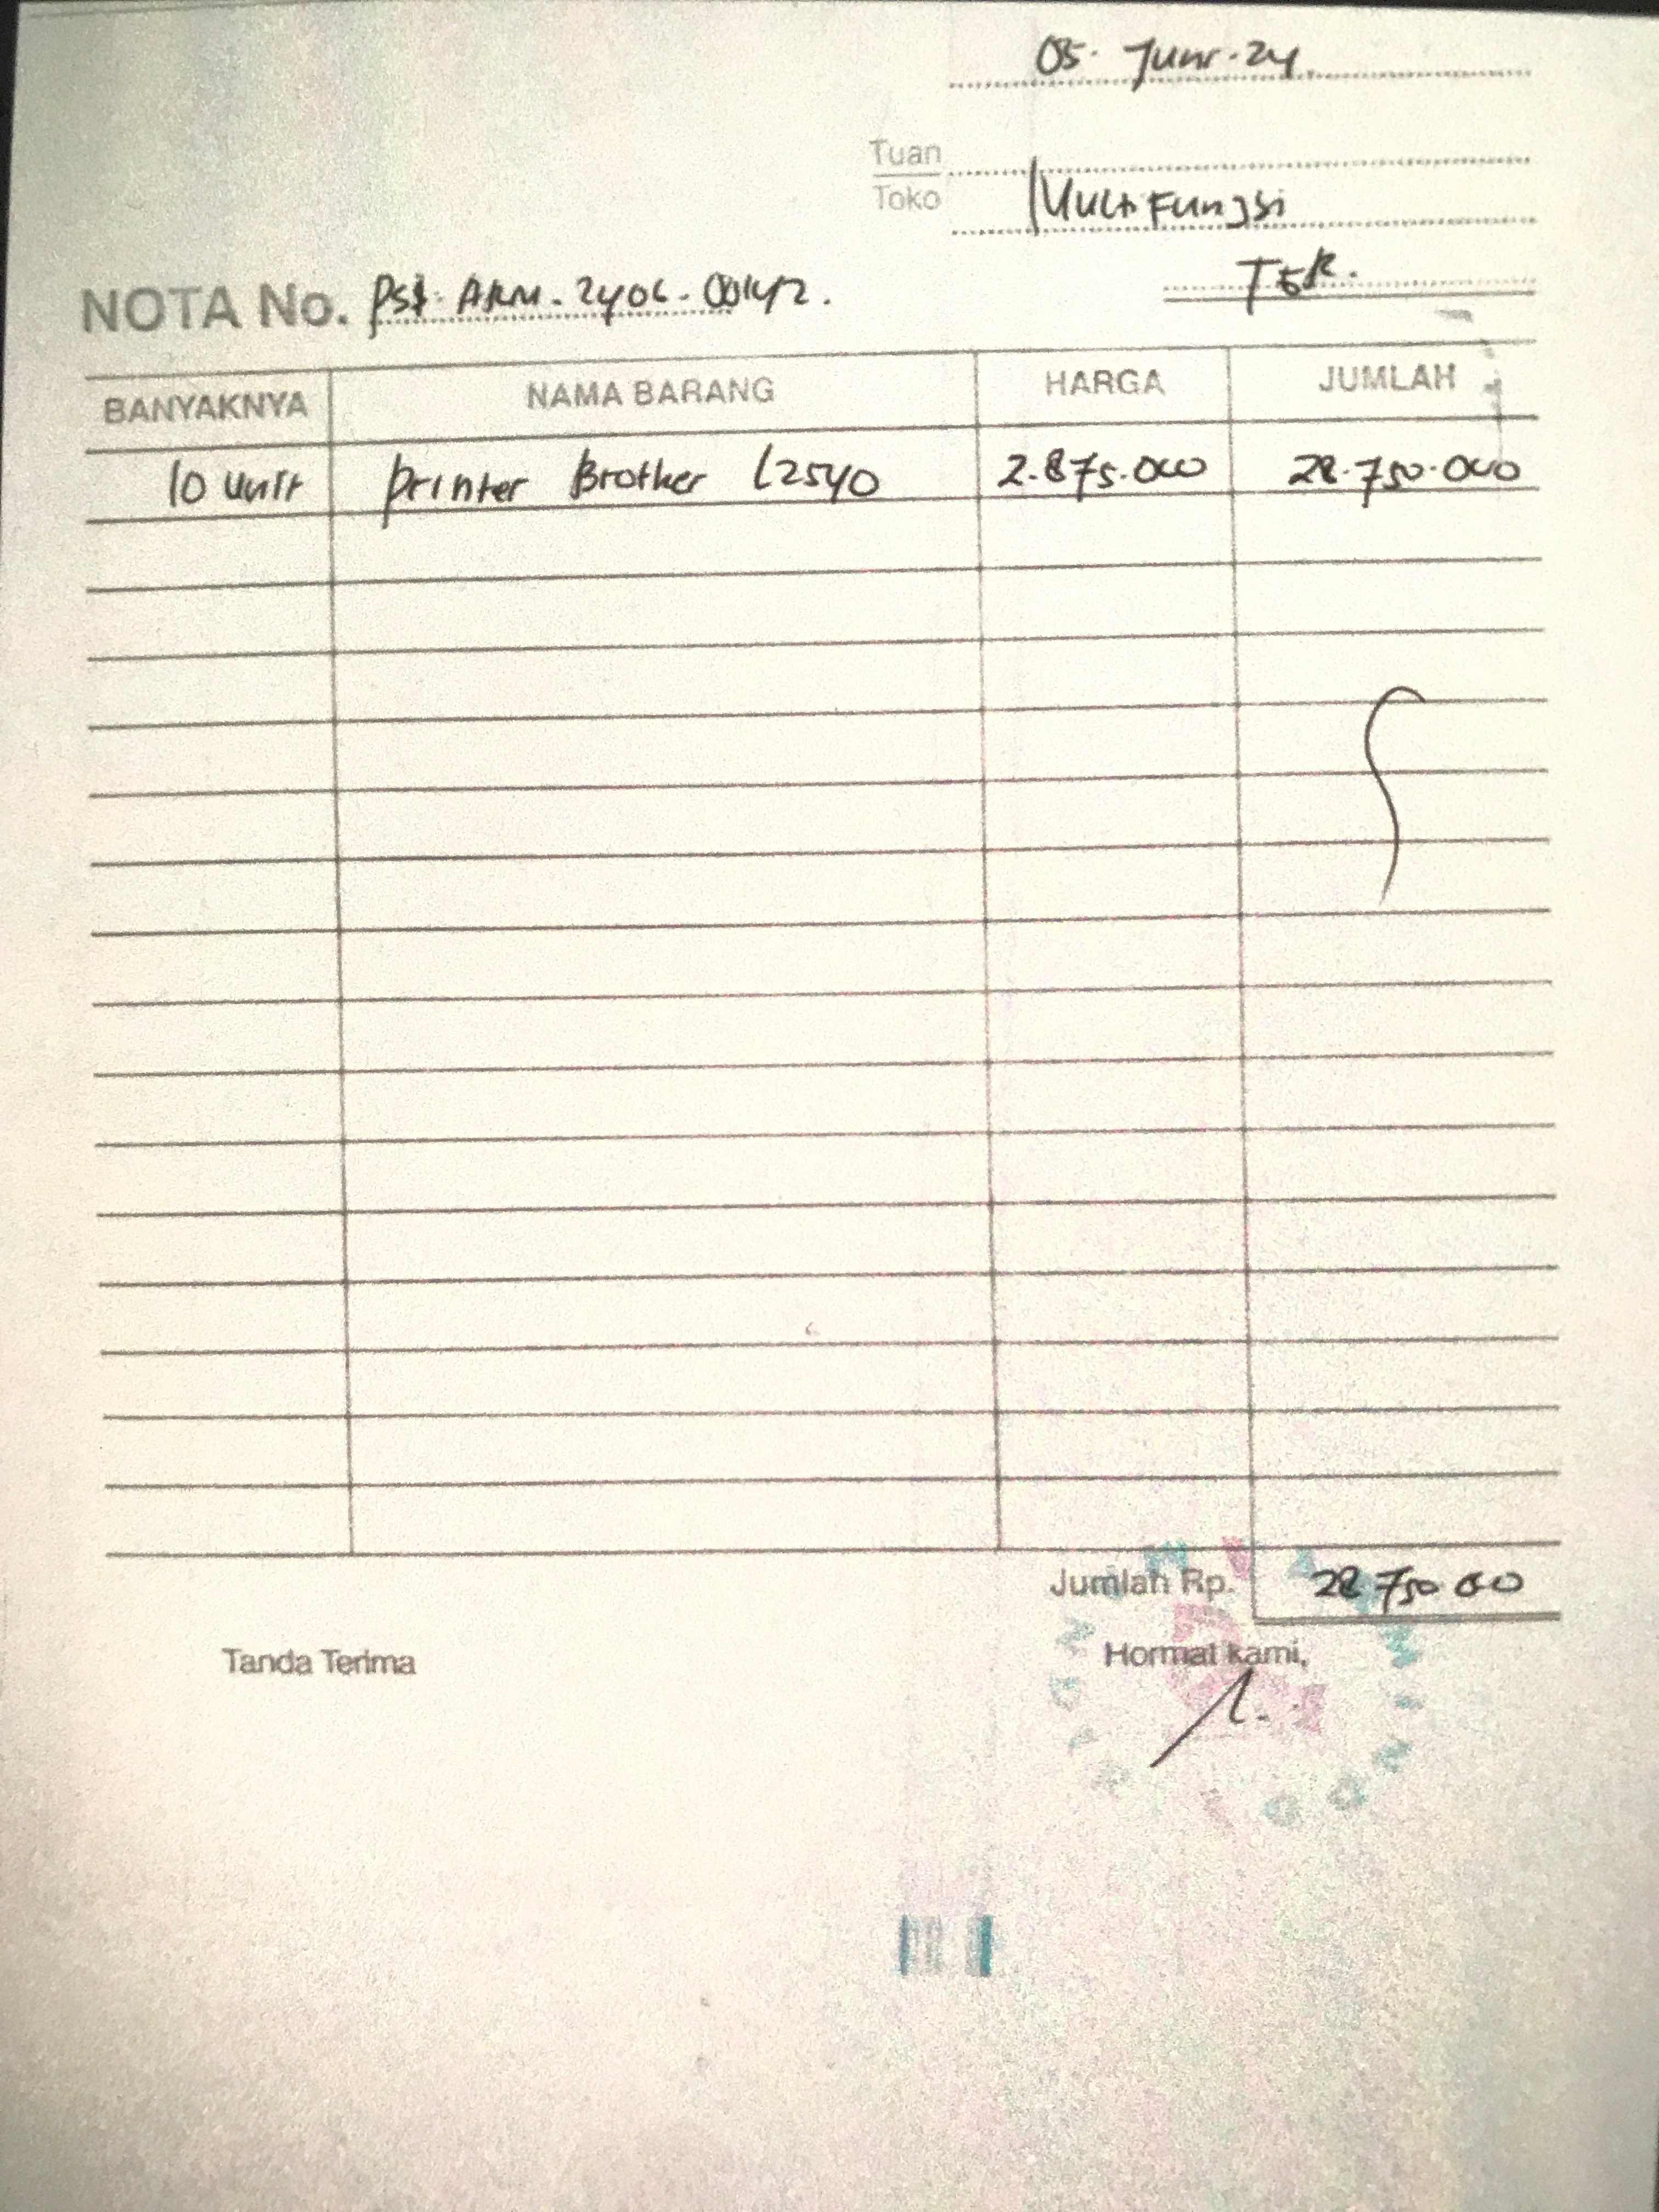 05. Juni. 24
Tuan
Toko
Multifungsi
NOTA No. PSI. ARM. 2406. 00142.
BANYAKNYA NAMA BARANG HARGA JUMLAH
10 unit printer Brother L2540 2.875.000 28.750.000
Jumlah Rp. 28.750.00
Tanda Terima Hormat kami,